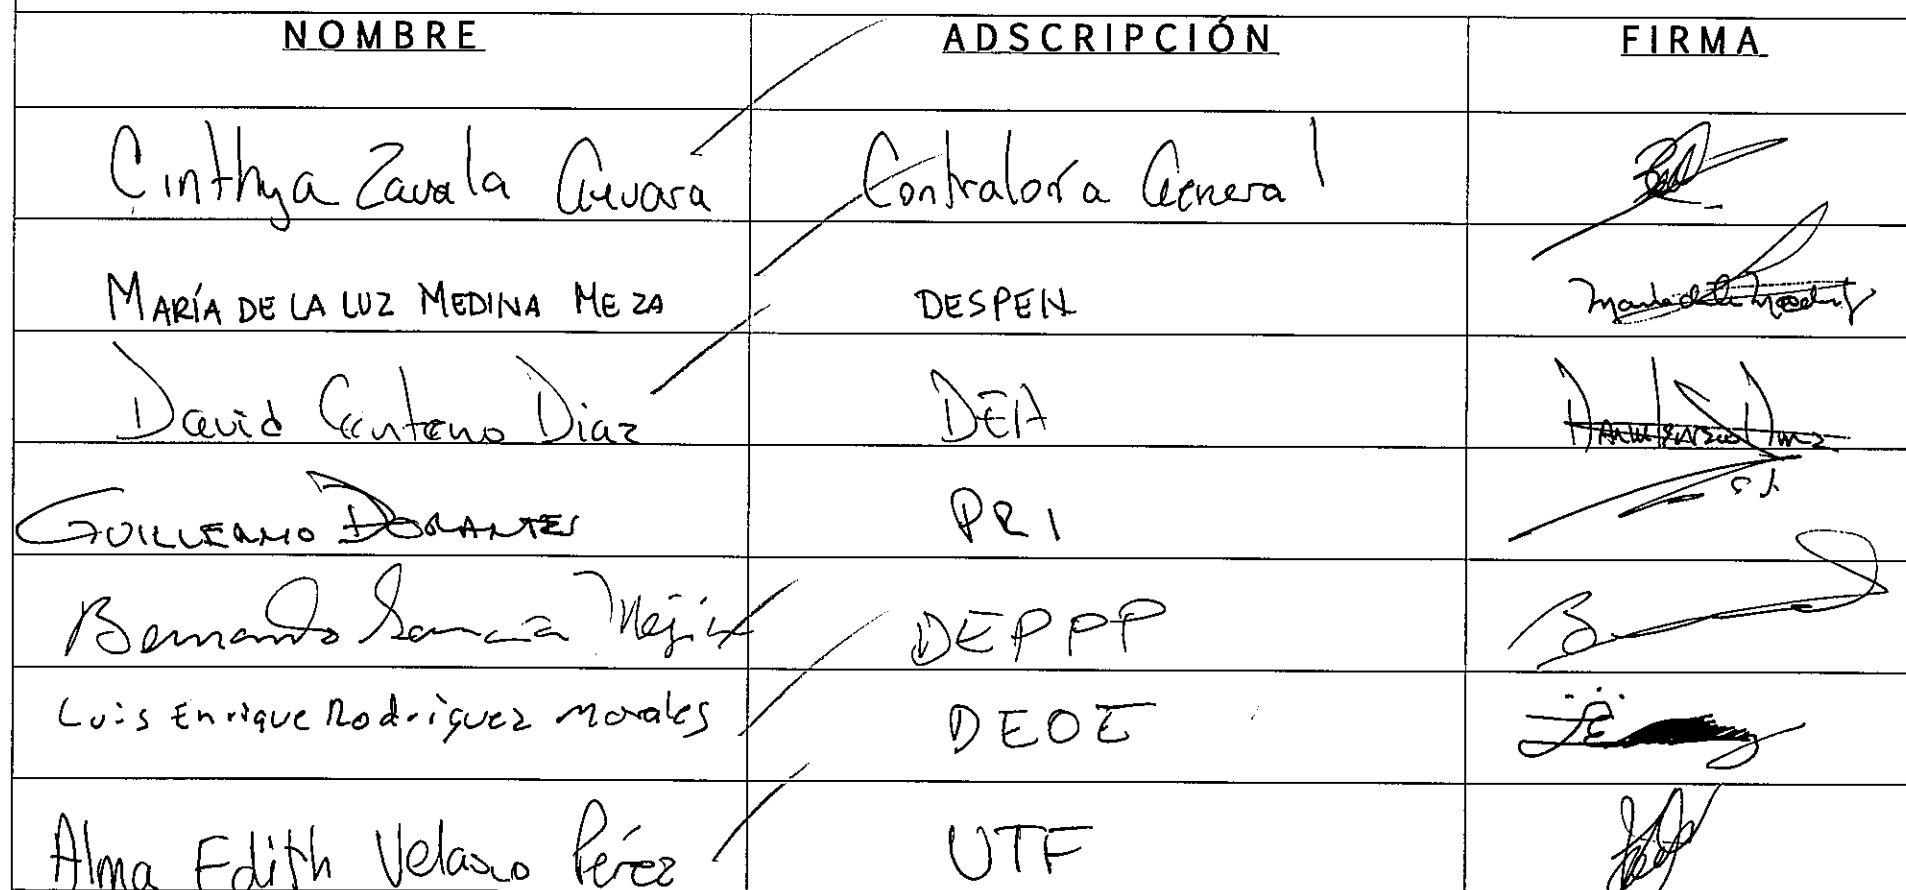 NOMBRE ADSCRIPCIÓN FIRMA
Cinthya Zavala Guevara Contraloría General
MARÍA DE LA LUZ MEDINA MEZA DESPEN
David Centeno Diaz DEA
GUILLERMO DORANTES PRI
Bernardo Mejía DEPPP
Luis Enrique Rodríguez Morales DEOE
Alma Edith Velasco Pérez UTF